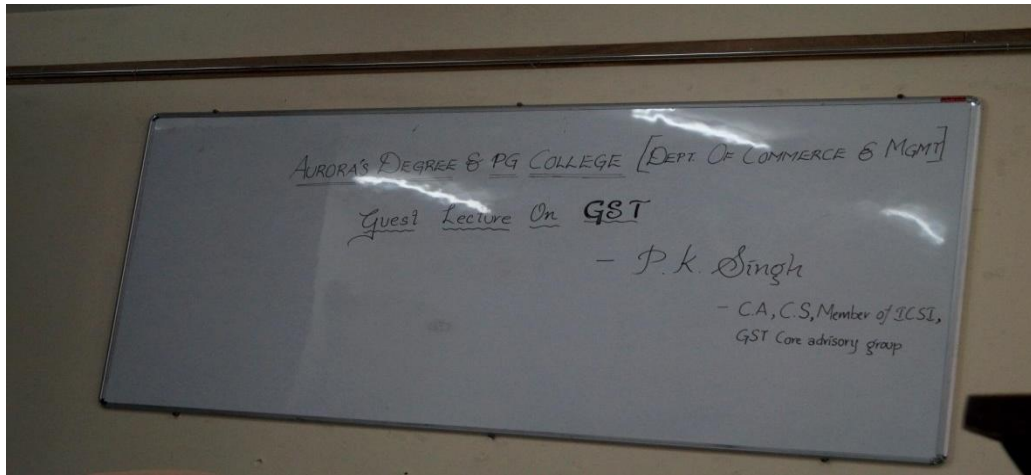 AURORA'S DEGREE & PG COLLEGE [DEPT. OF COMMERCE & MGMT]
Guest Lecture On GST
- P.K. Singh
- C.A, C.S, Member of ICSI,
GST Core advisory group